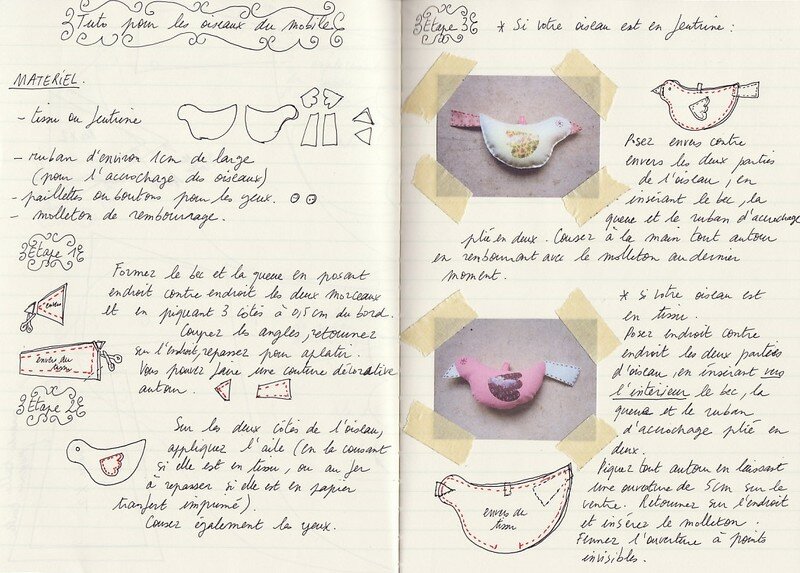 Tuto pour les oiseaux du mobile
MATERIEL.
- tissu ou feutrine
- ruban d'environ 1cm de large
(pour l'accrochage des oiseaux)
- paillettes ou boutons pour les yeux.
- molleton de rembourrage.
Etape 1
Formez le bec et la queue en posant
endroit contre endroit les deux morceaux
et en piquant 3 côtés à 0,5cm du bord.
Coupez les angles, retournez
sur l'endroit, repassez pour aplatir.
Vous pouvez faire une couture décorative
autour.
envers
envers du
tissu
Etape 2
Sur les deux côtés de l'oiseau,
appliquez l'aile (en la cousant
si elle est en tissu, ou au fer
à repasser si elle est en papier
transfert imprimé).
Cousez également les yeux.
Etape 3
* Si votre oiseau est en feutrine :
Posez envers contre
envers les deux parties
de l'oiseau, en
insérant le bec, la
queue et le ruban d'accrochage
plié en deux. Cousez à la main tout autour
en rembourrant avec le molleton au dernier
moment.
* si votre oiseau est
en tissu.
Posez endroit contre
endroit les deux parties
d'oiseau, en insérant vers
l'intérieur le bec, la
queue et le ruban
d'accrochage plié en
deux.
Piquez tout autour en laissant
une ouverture de 5cm sur le
ventre. Retournez sur l'endroit
et insérez le molleton.
Fermez l'ouverture à points
invisibles.
envers du
tissu